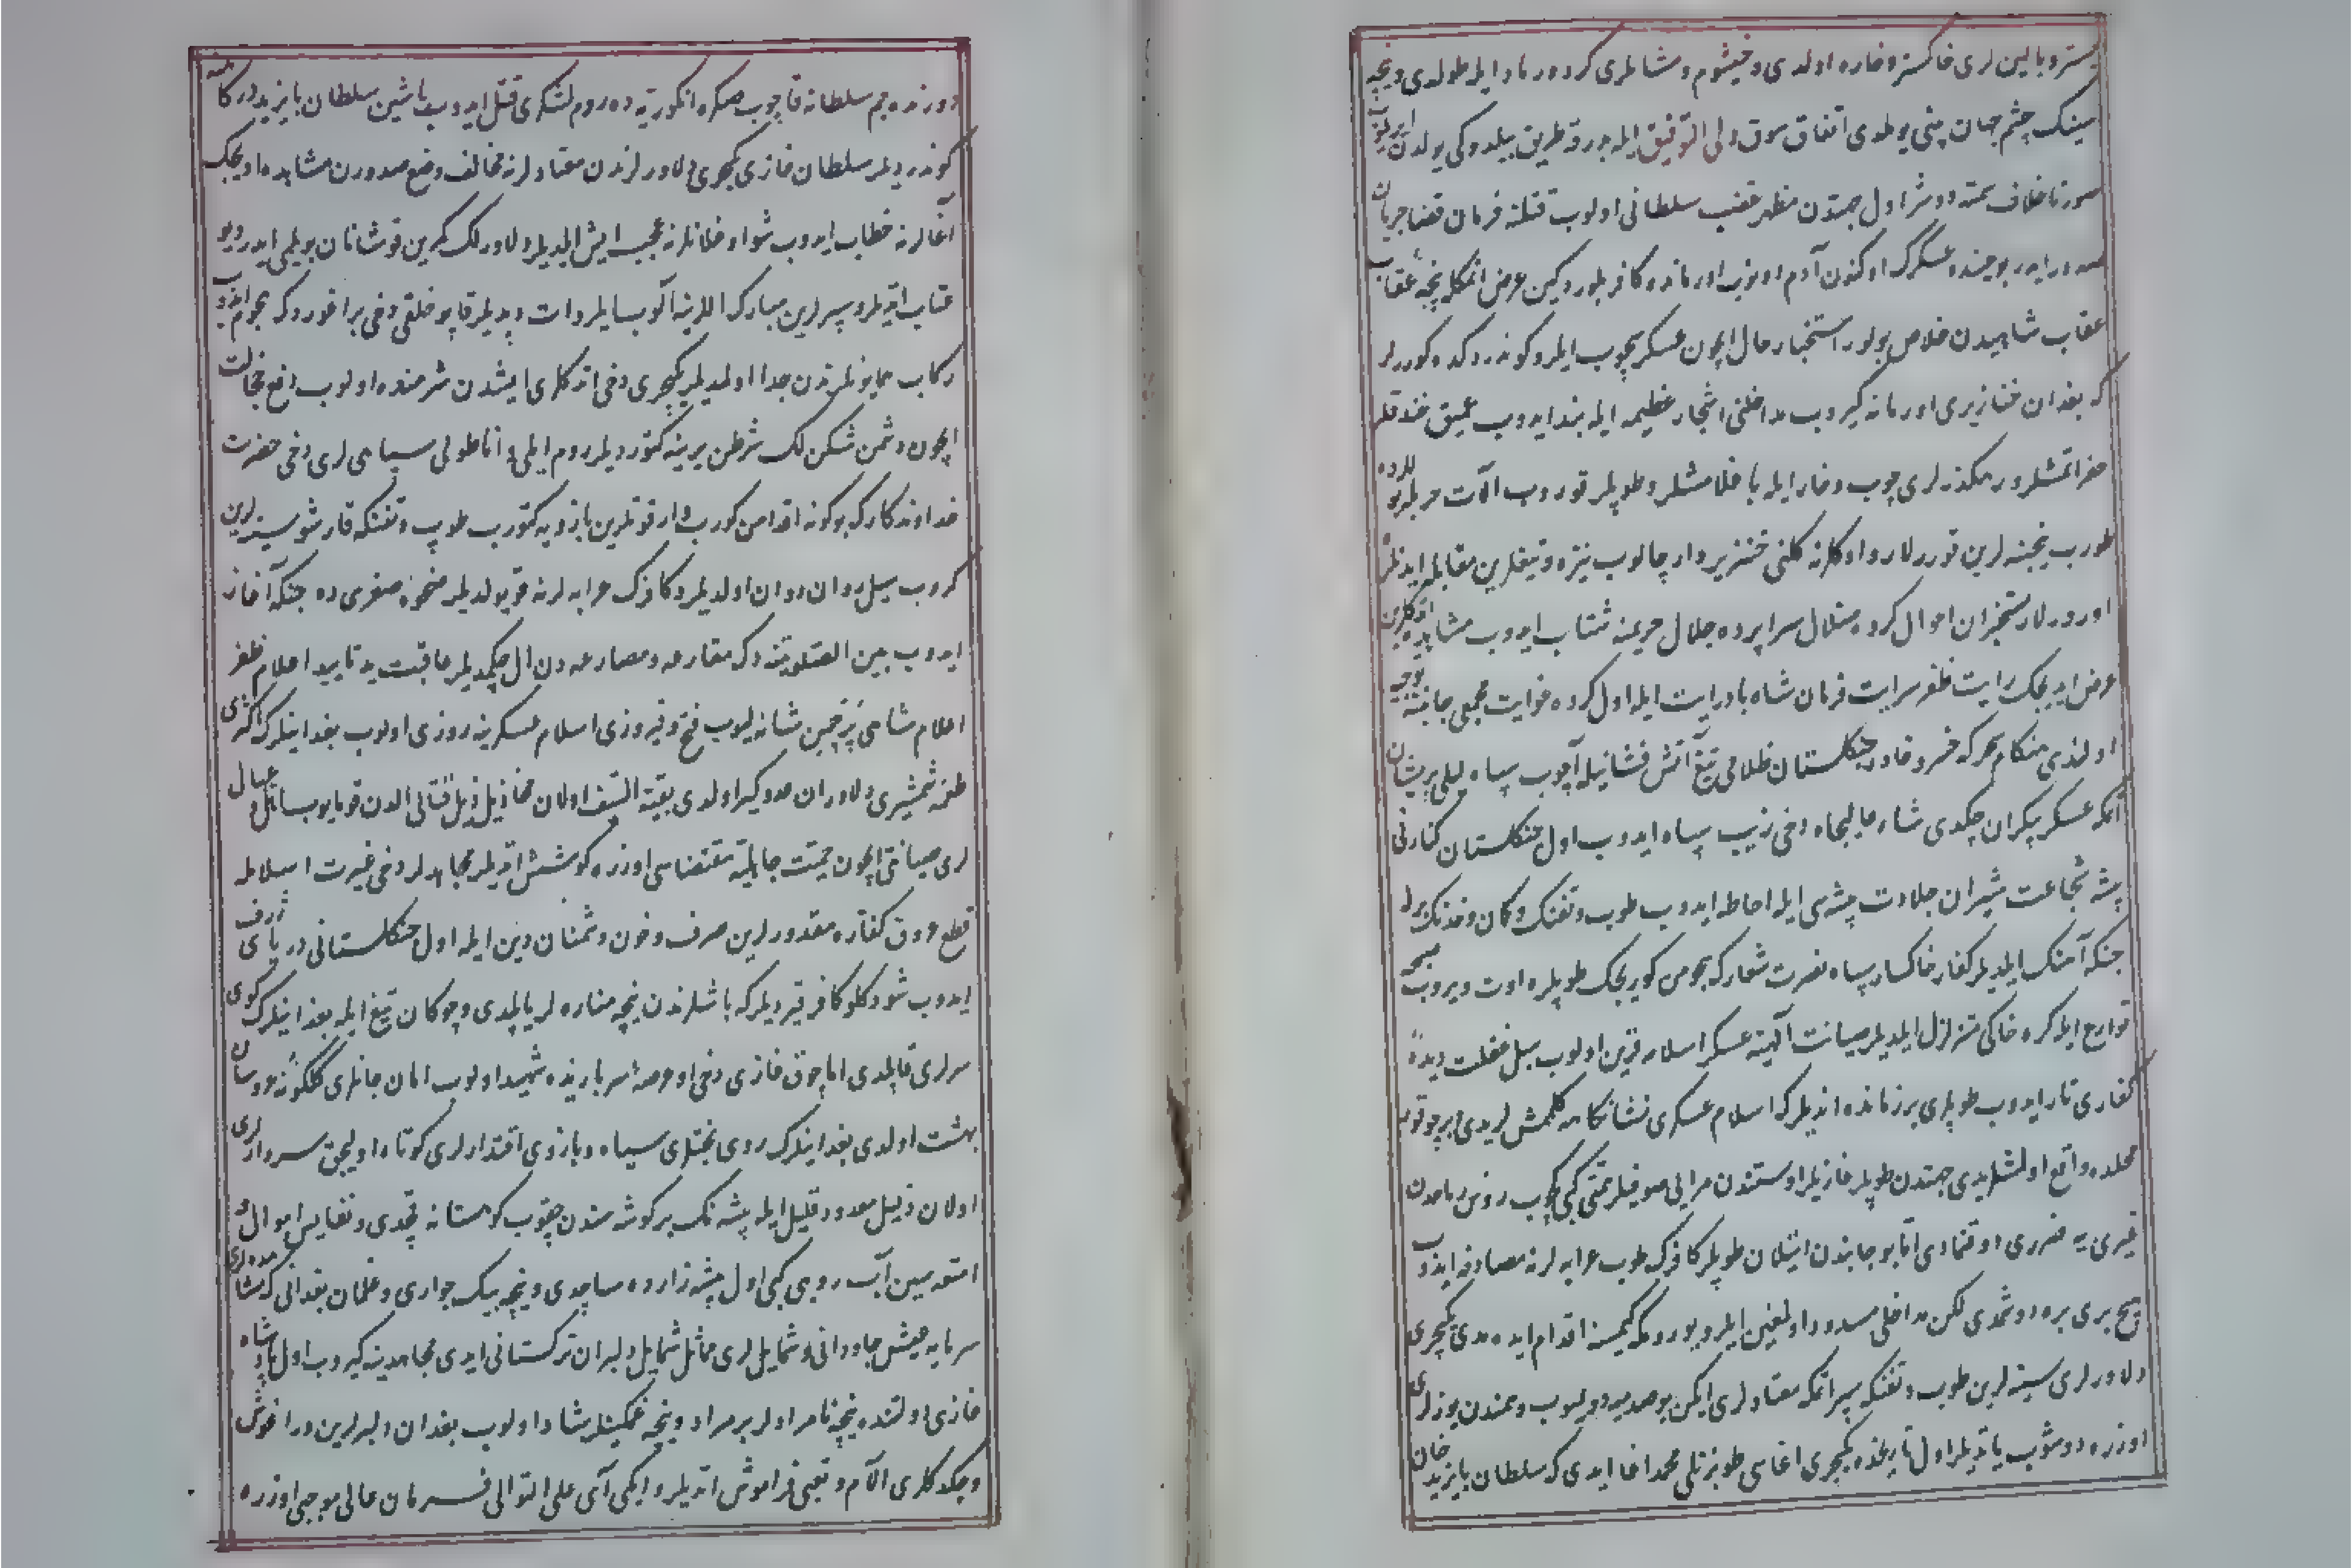 بستر و بالین لری خاکستر و خاره اولدی و خیشوم و مشاملری کرد و رماد ایله طولدی و نیچه
سینک چشم جهان بینی یوملدی اتفاق سوق ولی التوفیق ایله بدرقه طریق بیلدوکی یولدن ایرلوب
صورتا خلاف سمته دوشر اول جهتدن مظهر غضب سلطانی اولوب قتلنه فرمان قضا جریان
صدور ایدر بو حینده عسکرک اوکندن آدم اورمانده کافر بلوردکین عرض اتمکله پنجه عقاب
عقاب شاهیدن خلاص بولور استخبار حال ایچون عسکر سچوب ایلرو کوندردکده کوردلر
که بغدان خنازیری اورمانه کیروب مداخلنی اشجار عظیمه ایله بند ایدوب عمیق خندقلر
حفر اتمشلر و رهکذرلری چوب و خار ایله باغلامشلر و طوپلر قوروب آلات حربله
طورب پنجه لرین قوررلار و اوکلرنه کلنی خنزیروار چالوب نیزه و تیغلرین مقابله ایدنلره
اورورلار مستخبران احوال کروه ضلال سراپرده جلال حریمنه شتاب ایدوب مشاهده اتدکلرین
عرض ایدیجک رایت ظفر سرایت فرمان شاه با درایت ایله اول کروه غوایت مجمعی جانبنه توجه
اولندی هنکام سحر که خسرو خاور جنکلستان ظلامی تیغ آتش فشانیله آچوب سپاه لیلی پریشان
اتمکه عسکر بیکران چکدی شاه عالیجاه دخی ترتیب سپاه ایدوب اول جنکلستان کنارنی
پیشه شجاعت شیران جلادت پیشه سی ایله احاطه ایدوب طوپ و تفنک و کمان و خدنک برله
جنکه آهنک ایلدیلر کفار خاکسار سپاه نصرت شعارک هجومن کوریجک طوپلره اوت ویروب
قوارع ایله کره خاکی متزلزل ایلدیلر صیانت الهیه عسکر اسلامه قرین اولوب سبل غفلت دیدۀ
کفاری تار ایدوب طوپلری بر زمانده اتدیلر که اسلام عسکری نشانکاهه کلمش لریدی بر چوقور
محلده واقع اولمشلریدی جهتدن طوپلر غازیلر اوستندن مرایی صوفیلر نمتی کبی کچوب روی رماددن
غیری یه ضرری اوقنمادی اما بو جانبدن اتیلان طوپلر کافرک طوپ عرابه لرنه مصادف ایدوب
هیچ بری یره دوشمدی لکن مداخلی مسدود اولمغین ایلرو یوریمکه کیمسنه اقدام ایده مدی یکیچری
دلاورلری سینه لرین طوپ و تفنکه سپر اتمک معتادلری ایکن بو صدمه دویمیوب وهمندن یوزلری
اوزره دوشوب یاتدیلر اول تاریخده یکیچری اغاسی طوبزنلی محمد اغا ایدی که سلطان بایزید خان
دورنده جم سلطانه قاچوب صکره انکوریه ده روم لشکری قتل ایدوب باشین سلطان بایزید درکاهنه
کوندردیلر سلطان غازی یکیچری دلاورلرندن معتادلرنه مخالف وضع صدورن مشاهده ایدیجک
آغالرنه خطاب ایدوب شو اوغلانلر نه عجب ایش ایلدیلر دلاورلک کمرین قوشانان بویلمی ایدر دیو
عتاب اتدیلر و سپرلرین مبارک اللرینه آلوب سایلر و ات دپدیلر قاپو خلقی دخی بر اغوردن که هجوم ایدوب
رکاب همایونلرندن جدا اولمدیلر یکیچری دخی اتدکلری ایشدن شرمنده اولوب دفع خجالت
ایچون دشمن شکن لک شرطن یرینه کتوردیلر روم ایلی و اناطولی سپاهی لری دخی حضرت
خداوندکارک بو کونه اقدامن کورب وار قوتلرین بازویه کتورب طوپ و تفنکه قارشو سینه لرین
کروب سیل روان روان اولدیلر و کافرک عرابه لرنه قویولدیلر ضحوۀ صغری ده جنکه آغاز
ایدوب بین الصلوتینه دک مقارعه و مصارعه دن ال چکمدیلر عاقبت ید تایید اعلام ظفر
اعلام شاهی پرچمین شانه لیوب فتح و فیروزی اسلام عسکرینه روزی اولوب بغدانیلرک اکثری
طعمه شمشیری دلاوران عدوکیر اولدی بقیة السیف اولان مخاذیل ذیل قتالی الدن قومایوب مال و عیال
لری صیانتی ایچون حمیت جاهلیه مقتضاسی اوزره کوشش اتدیلر مجاهدلر دخی غیرت اسلامله
قطع عروق کفاره مقدورلرین صرف و خون دشمنان دین ایله اول جنکلستانی دریای ژرف
ایدوب شو دکلو کافر قیردیلر که باشلرندن نیچه مناره لر یاپلدی و چوکان تیغ ایله بغدانیلرک کوی
سرلری قاپلدی اما چوق غازی دخی او عرصۀ سربازیده شهید اولوب امان جانلری کلکونه عروسان
بهشت اولدی بغدانیلرک روی بختلری سیاه و بازوی اقتدارلری کوتاه اولیجق سردارلری
اولان ذلیل معدود قلیل ایله پیشه نک بر کوشه سندن چقوب کوهستانه قچدی و نفایس اموال
امتعه سین آب روی کبی اول پیشه زارده ساچدی و نیچه بیک جواری و غلمان بغدانی که مشاهده لری
سرمایه عیش جاودانی و شمایل لری مماثل شمایل دلبران ترکستانی ایدی مجاهدینه کیروب اول
غازی اولتنده نیچه نامرادلر بر مراد و نیچه غمکینلر شاد اولوب بغدان دلبرلرین در آغوش
و چکدکلری آلام و تعبی فراموش اتدیلر و ایکی آی علی التوالی فرمان عالی موجبی اوزره